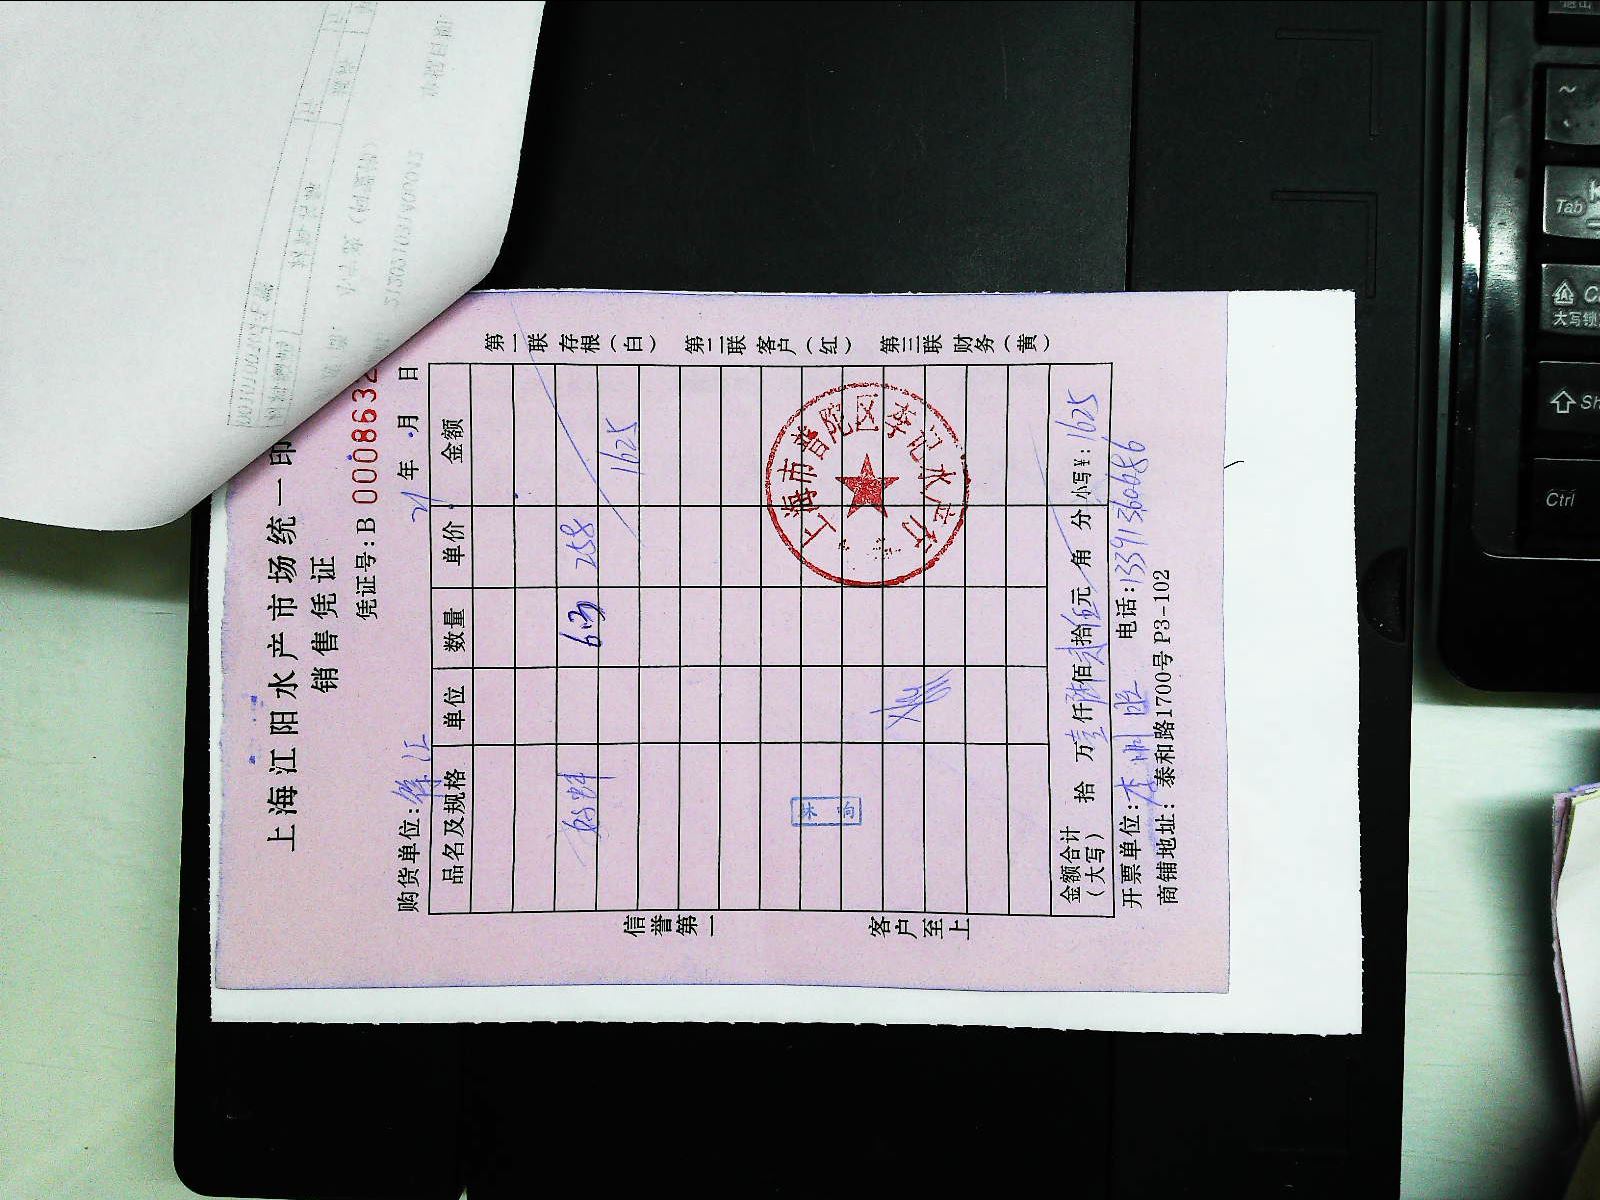 上海江阳水产市场统一印
销售凭证
凭证号:B 0008632
购货单位:徐汇 21年 月 日
品名及规格 单位 数量 单价 金额
6.3 258
1625
金额合计(大写) 拾 万壹仟陆佰贰拾伍元 角 分 小写¥:1625
开票单位:李明 电话:13391360686
商铺地址:泰和路1700号P3-102
第一联 存根(白) 第二联 客户(红) 第三联 财务(黄)
信誉第一
客户至上
上海市普陀区李记水产行
~
Tab
大写锁
Sh
Ctrl